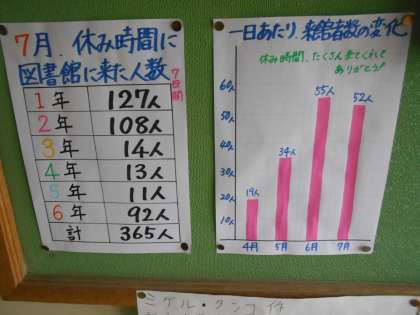 7月、休み時間に
図書館に来た人数
7日間
1年 127人
2年 108人
3年 14人
4年 13人
5年 11人
6年 92人
計 365人
一日あたり、来館者数の変化
休み時間、たくさん来てくれて
ありがとう!
60人
50人
40人
30人
20人
10人
19人
34人
55人
52人
4月 5月 6月 7月